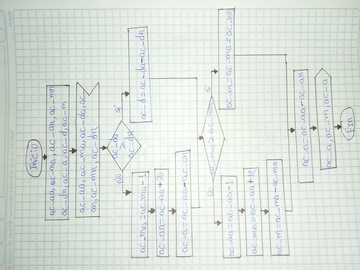 Inicio
ac-aa, ac-ma, ac-an, ac-mn
ac-dn, ac-a, ac-d, ac-m
ac-aa, ac-ma, ac-da, ac-
an, ac-mn, ac-dn
No
ac-da
>
ac-dn
Si
ac-ma=ac-ma-1
ac-d=ac-da-ac-dn
ac-aa=ac-aa+30
ac-a=ac-aa-ac-an
No
ac-ma>ac-mn
Si
ac-aa=ac-aa-1
ac-m=ac-ma-ac-mn
ac-ma=ac-aa+30
ac-m=ac-ma-ac-mn
ac-a=ac-aa-ac-an
ac-a, ac-m, ac-a
Fin